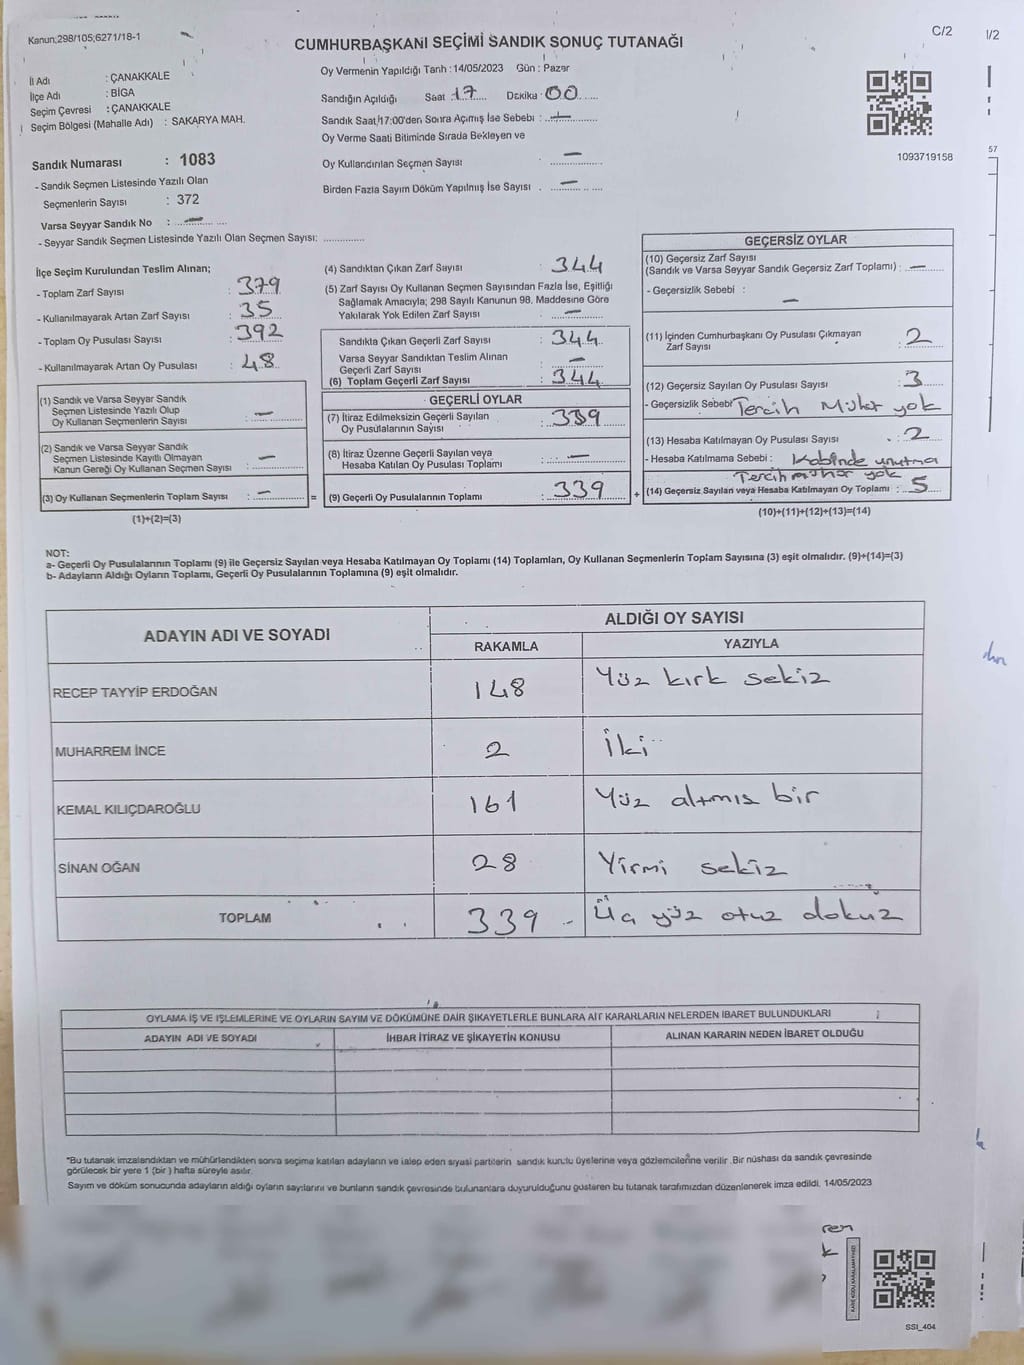 Kanun;298/105;6271/18-1
C/2
1/2
CUMHURBAŞKANI SEÇİMİ SANDIK SONUÇ TUTANAĞI
İl Adı : ÇANAKKALE
İlçe Adı : BİGA
Seçim Çevresi : ÇANAKKALE
Seçim Bölgesi (Mahalle Adı) : SAKARYA MAH.
Oy Vermenin Yapıldığı Tarih : 14/05/2023 Gün : Pazar
Sandığın Açıldığı Saat 17 Dakika : 00
Sandık Saat 17:00'den Sonra Açımış İse Sebebi : —
Oy Verme Saati Bitiminde Sırada Bekleyen ve
Oy Kullandırılan Seçmen Sayısı : —
Birden Fazla Sayım Döküm Yapılmış İse Sayısı : —
1093719158
57
Sandık Numarası : 1083
- Sandık Seçmen Listesinde Yazılı Olan
Seçmenlerin Sayısı : 372
Varsa Seyyar Sandık No : —
- Seyyar Sandık Seçmen Listesinde Yazılı Olan Seçmen Sayısı: ..............
İlçe Seçim Kurulundan Teslim Alınan;
- Toplam Zarf Sayısı : 379
- Kullanılmayarak Artan Zarf Sayısı : 35
- Toplam Oy Pusulası Sayısı : 392
- Kullanılmayarak Artan Oy Pusulası : 48
(1) Sandık ve Varsa Seyyar Sandık
Seçmen Listesinde Yazılı Olup
Oy Kullanan Seçmenlerin Sayısı : —
(2) Sandık ve Varsa Seyyar Sandık
Seçmen Listesinde Kayıtlı Olmayan
Kanun Gereği Oy Kullanan Seçmen Sayısı : —
(3) Oy Kullanan Seçmenlerin Toplam Sayısı : —
=
(1)+(2)=(3)
(4) Sandıktan Çıkan Zarf Sayısı : 344
(5) Zarf Sayısı Oy Kullanan Seçmen Sayısından Fazla İse, Eşitliği
Sağlamak Amacıyla; 298 Sayılı Kanunun 98. Maddesine Göre
Yakılarak Yok Edilen Zarf Sayısı : —
Sandıkta Çıkan Geçerli Zarf Sayısı : 344
Varsa Seyyar Sandıktan Teslim Alınan
Geçerli Zarf Sayısı : —
(6) Toplam Geçerli Zarf Sayısı : 344
GEÇERLİ OYLAR
(7) İtiraz Edilmeksizin Geçerli Sayılan
Oy Pusulalarının Sayısı : 339
(8) İtiraz Üzerine Geçerli Sayılan veya
Hesaba Katılan Oy Pusulası Toplamı : —
(9) Geçerli Oy Pusulalarının Toplamı : 339
+
GEÇERSİZ OYLAR
(10) Geçersiz Zarf Sayısı
(Sandık ve Varsa Seyyar Sandık Geçersiz Zarf Toplamı) : —
- Geçersizlik Sebebi :
—
(11) İçinden Cumhurbaşkanı Oy Pusulası Çıkmayan
Zarf Sayısı : 2
(12) Geçersiz Sayılan Oy Pusulası Sayısı : 3
- Geçersizlik Sebebi Tercih Mühür yok
(13) Hesaba Katılmayan Oy Pusulası Sayısı : 2
- Hesaba Katılmama Sebebi : Kabinde unutma
Tercih mühür yok
(14) Geçersiz Sayılan veya Hesaba Katılmayan Oy Toplamı : 5
(10)+(11)+(12)+(13)=(14)
NOT:
a- Geçerli Oy Pusulalarının Toplamı (9) ile Geçersiz Sayılan veya Hesaba Katılmayan Oy Toplamı (14) Toplamları, Oy Kullanan Seçmenlerin Toplam Sayısına (3) eşit olmalıdır. (9)+(14)=(3)
b- Adayların Aldığı Oyların Toplamı, Geçerli Oy Pusulalarının Toplamına (9) eşit olmalıdır.
ADAYIN ADI VE SOYADI
ALDIĞI OY SAYISI
RAKAMLA YAZIYLA
RECEP TAYYİP ERDOĞAN 148 Yüz kırk sekiz
MUHARREM İNCE 2 İki
KEMAL KILIÇDAROĞLU 161 Yüz altmış bir
SİNAN OĞAN 28 Yirmi sekiz
TOPLAM 339 - Üç yüz otuz dokuz
OYLAMA İŞ VE İŞLEMLERİNE VE OYLARIN SAYIM VE DÖKÜMÜNE DAİR ŞİKAYETLERLE BUNLARA AİT KARARLARIN NELERDEN İBARET BULUNDUKLARI
ADAYIN ADI VE SOYADI İHBAR İTİRAZ VE ŞİKAYETİN KONUSU ALINAN KARARIN NEDEN İBARET OLDUĞU
*Bu tutanak imzalandıktan ve mühürlendikten sonra seçime katılan adayların ve talep eden siyasi partilerin sandık kurulu üyelerine veya gözlemcilerine verilir. Bir nüshası da sandık çevresinde
görülecek bir yere 1 (bir) hafta süreyle asılır.
Sayım ve döküm sonucunda adayların aldığı oyların sayılarını ve bunların sandık çevresinde bulunanlara duyurulduğunu gösteren bu tutanak tarafımızdan düzenlenerek imza edildi. 14/05/2023
SSI_404